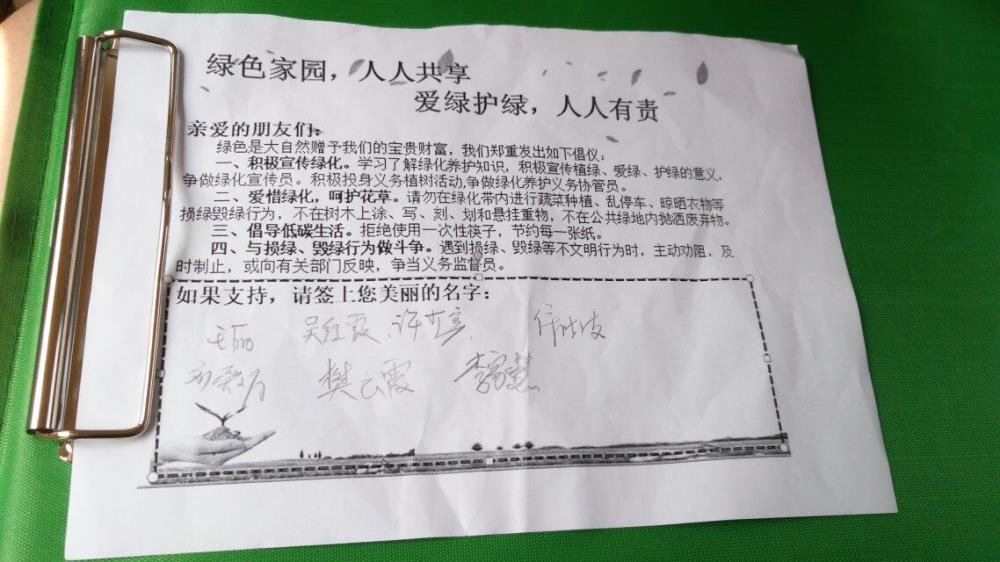 绿色家园，人人共享
爱绿护绿，人人有责
亲爱的朋友们：
绿色是大自然赠予我们的宝贵财富，我们郑重发出如下倡仪：
一、积极宣传绿化。学习了解绿化养护知识，积极宣传植绿、爱绿、护绿的意义，
争做绿化宣传员。积极投身义务植树活动，争做绿化养护义务协管员。
二、爱惜绿化，呵护花草。请勿在绿化带内进行蔬菜种植、乱停车、晾晒衣物等
损绿毁绿行为，不在树木上涂、写、刻、划和悬挂重物，不在公共绿地内抛洒废弃物。
三、倡导低碳生活。拒绝使用一次性筷子，节约每一张纸。
四、与损绿、毁绿行为做斗争。遇到损绿、毁绿等不文明行为时，主动劝阻，及
时制止，或向有关部门反映，争当义务监督员。
如果支持，请签上您美丽的名字：
王丽 吴红霞
樊云霞 李家慧